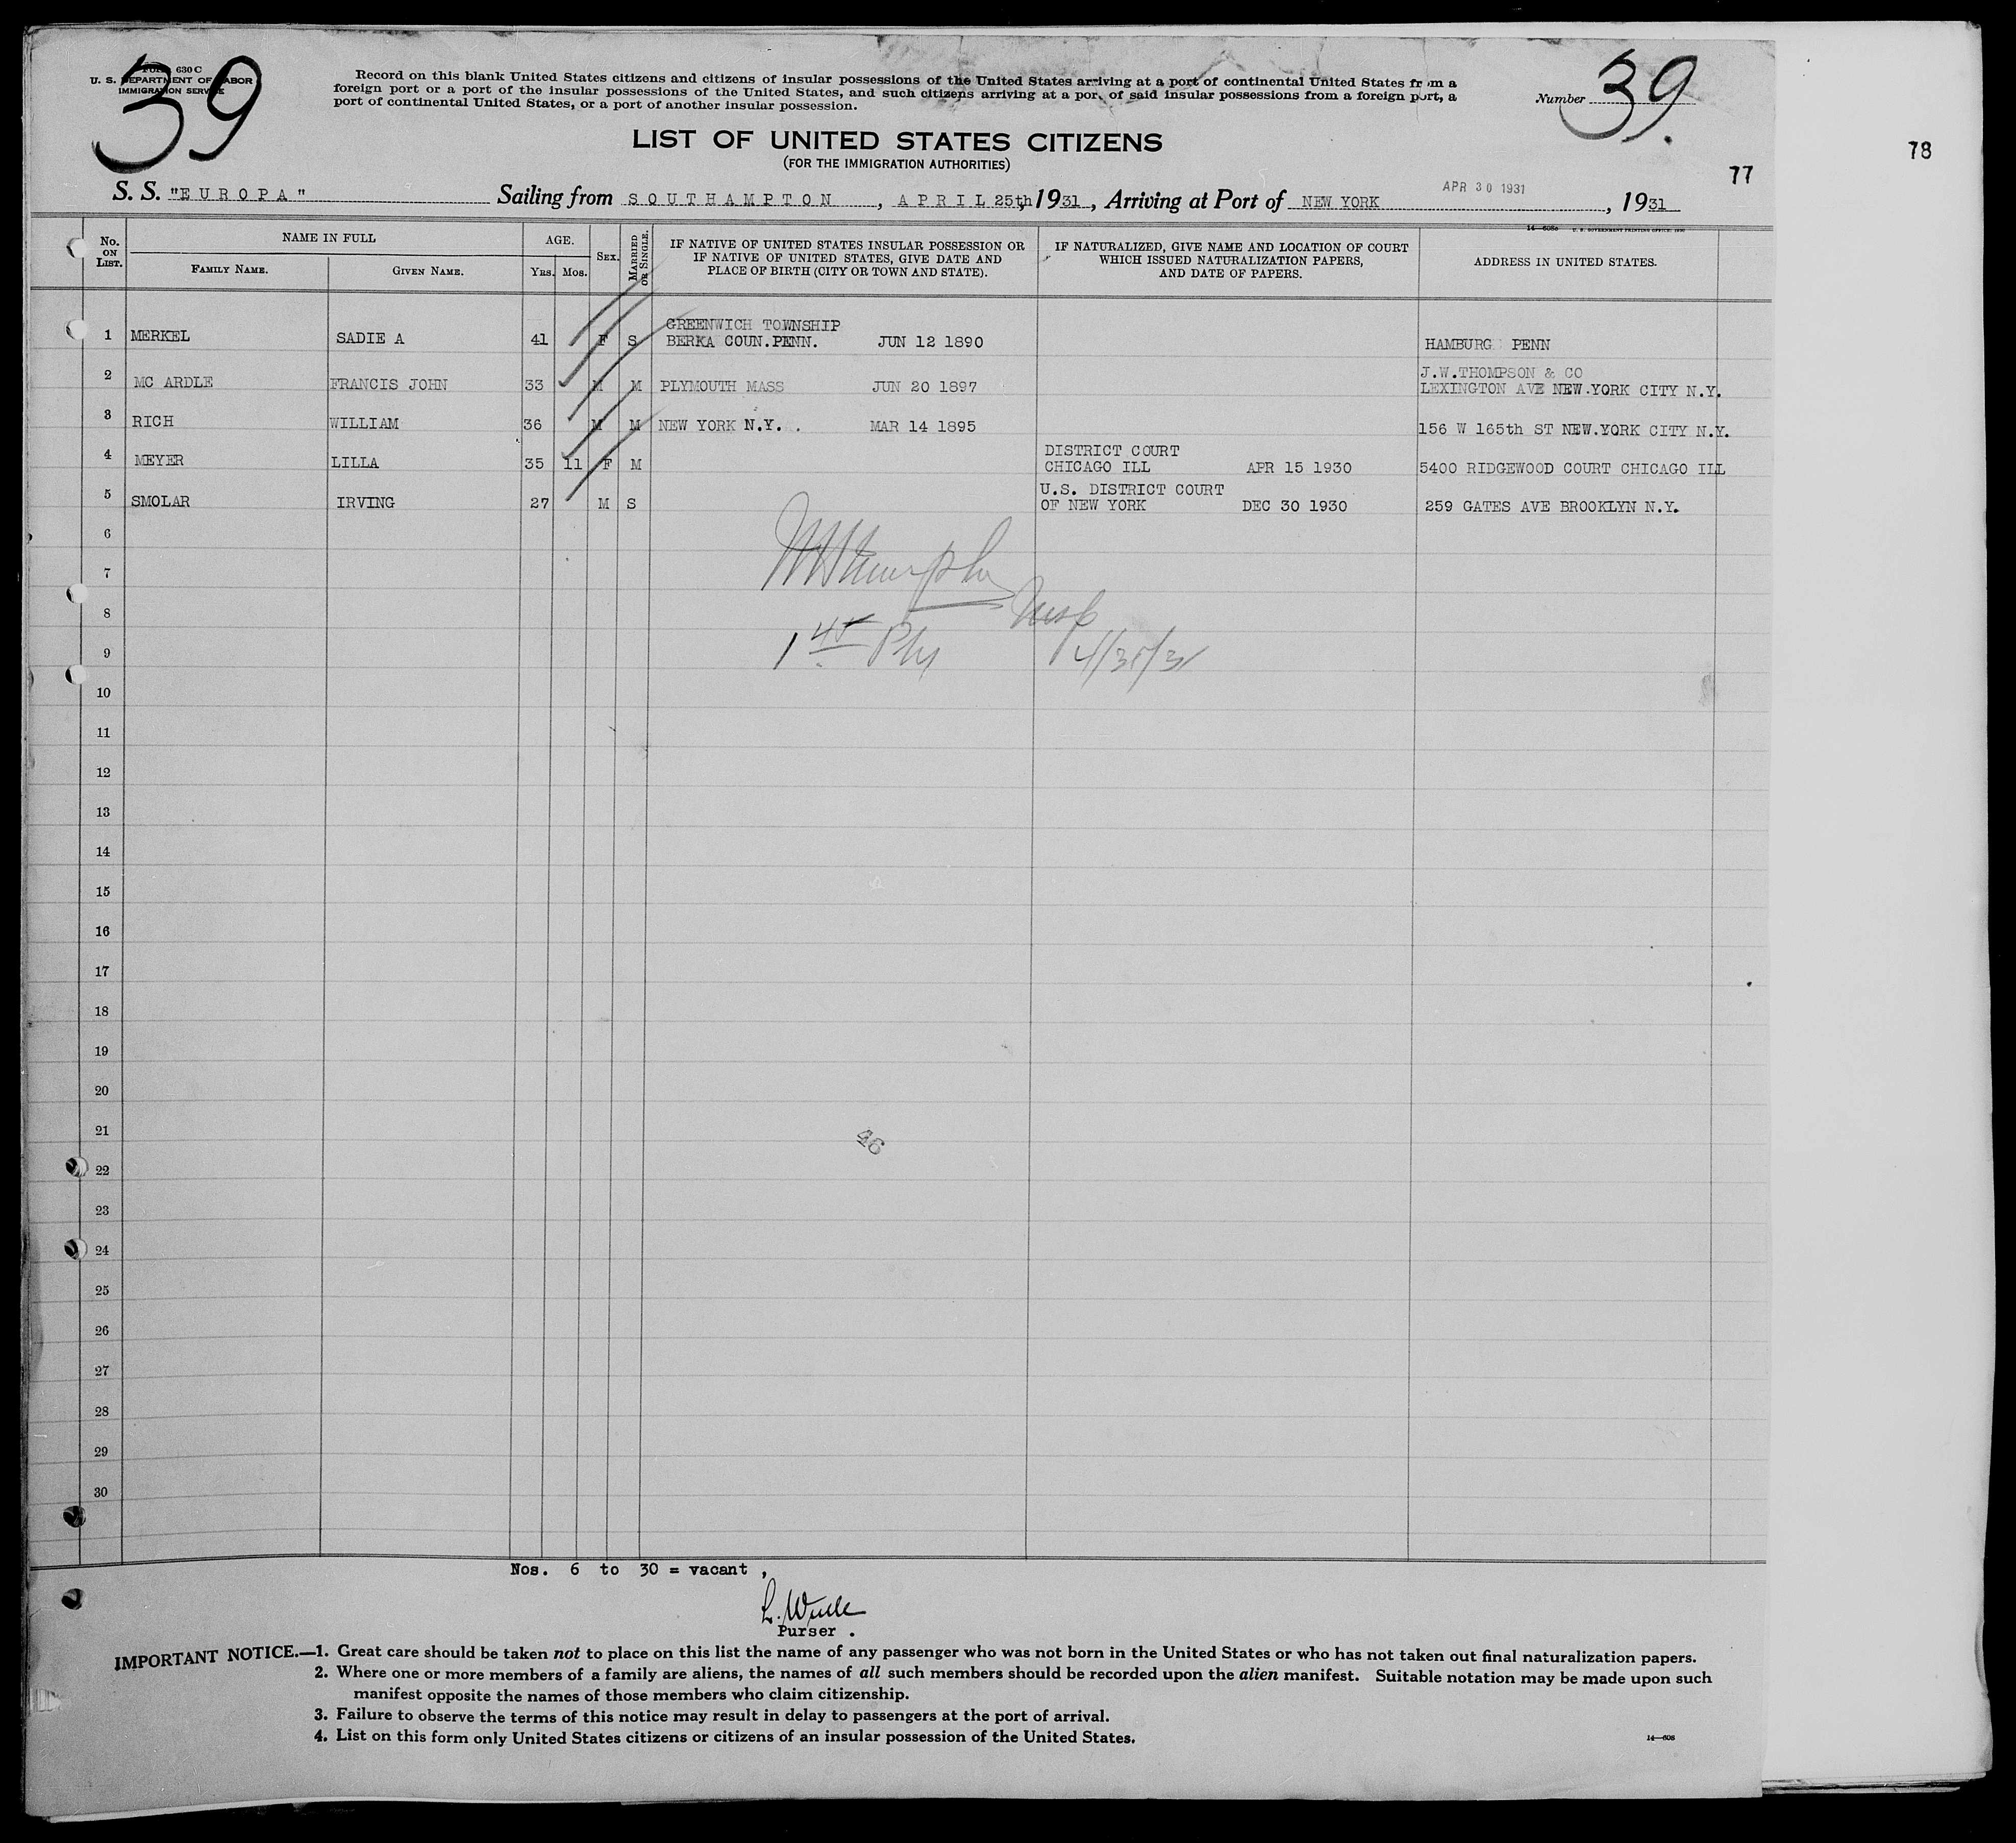 39
FORM 630 C
U. S. DEPARTMENT OF LABOR
IMMIGRATION SERVICE
Record on this blank United States citizens and citizens of insular possessions of the United States arriving at a port of continental United States from a
foreign port or a port of the insular possessions of the United States, and such citizens arriving at a port of said insular possessions from a foreign port, a
port of continental United States, or a port of another insular possession.
Number 39.
LIST OF UNITED STATES CITIZENS
(FOR THE IMMIGRATION AUTHORITIES)
78
77
APR 30 1931
S. S. "EUROPA" Sailing from SOUTHAMPTON, APRIL 25th, 1931, Arriving at Port of NEW YORK, 1931
No. ON LIST. NAME IN FULL FAMILY NAME. GIVEN NAME. AGE. Yrs. Mos. SEX. MARRIED OR SINGLE. IF NATIVE OF UNITED STATES INSULAR POSSESSION OR IF NATIVE OF UNITED STATES, GIVE DATE AND PLACE OF BIRTH (CITY OR TOWN AND STATE). IF NATURALIZED, GIVE NAME AND LOCATION OF COURT WHICH ISSUED NATURALIZATION PAPERS, AND DATE OF PAPERS. ADDRESS IN UNITED STATES.
GREENWICH TOWNSHIP
1 MERKEL SADIE A 41 F S BERKA COUN.PENN. JUN 12 1890 HAMBURG PENN
J.W.THOMPSON & CO
2 MC ARDLE FRANCIS JOHN 33 M M PLYMOUTH MASS JUN 20 1897 LEXINGTON AVE NEW.YORK CITY N.Y.
3 RICH WILLIAM 36 M M NEW YORK N.Y. . MAR 14 1895 156 W 165th ST NEW.YORK CITY N.Y.
DISTRICT COURT
4 MEYER LILLA 35 11 F M CHICAGO ILL APR 15 1930 5400 RIDGEWOOD COURT CHICAGO ILL
U.S. DISTRICT COURT
5 SMOLAR IRVING 27 M S OF NEW YORK DEC 30 1930 259 GATES AVE BROOKLYN N.Y.
6
7
8
9
10
11
12
13
14
15
16
17
18
19
20
21
46
22
23
24
25
26
27
28
29
30
Nos. 6 to 30 = vacant ,
Purser .
IMPORTANT NOTICE.—1. Great care should be taken not to place on this list the name of any passenger who was not born in the United States or who has not taken out final naturalization papers.
2. Where one or more members of a family are aliens, the names of all such members should be recorded upon the alien manifest. Suitable notation may be made upon such
manifest opposite the names of those members who claim citizenship.
3. Failure to observe the terms of this notice may result in delay to passengers at the port of arrival.
4. List on this form only United States citizens or citizens of an insular possession of the United States.
14—608